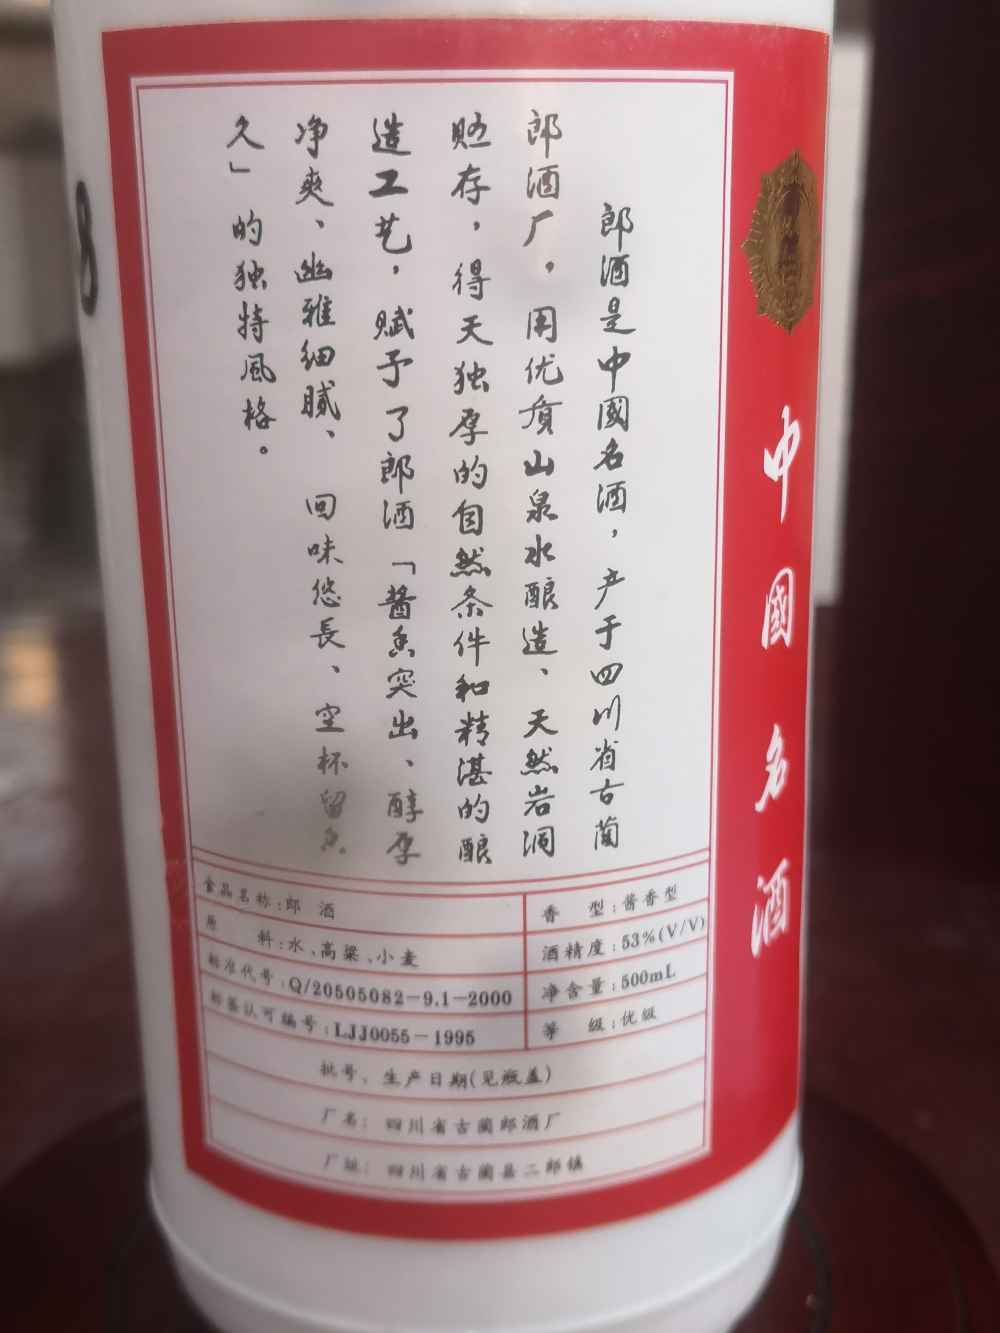 郎酒是中國名酒，产于四川省古蔺
郎酒厂。用优质山泉水酿造、天然岩洞
贮存，得天独厚的自然条件和精湛的酿
造工艺，赋予了郎酒「酱香突出、醇厚
净爽、幽雅细腻、回味悠長、空杯留香
久」的独特風格。
中國名酒
食品名称:郎 酒
香 型:酱香型
原 料:水、高粱、小麦
酒精度:53%(V/V)
标准代号:Q/20505082-9.1-2000
净含量:500mL
标签认可编号:LJJ0055-1995
等 级:优级
批号、生产日期(见瓶盖)
厂名: 四川省古蔺郎酒厂
厂址: 四川省古蔺县二郎镇
8